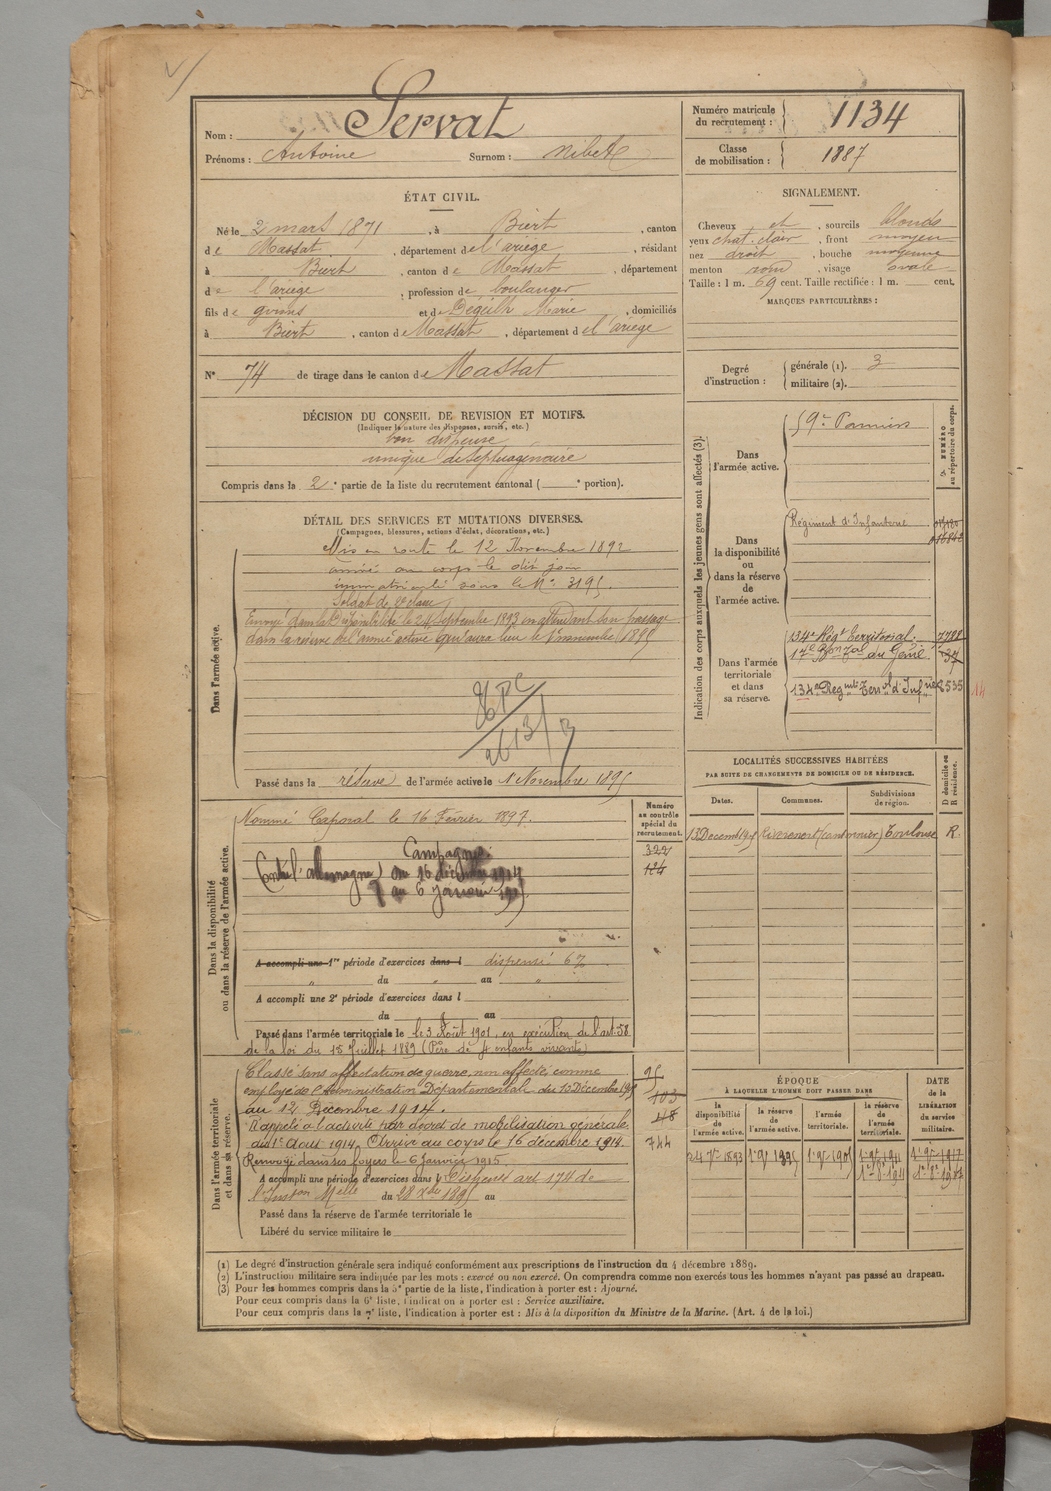 Nom : Servat
Prénoms : Antoine Surnom :
Numéro matricule du recrutement : 1134
Classe de mobilisation : 1887
ÉTAT CIVIL.
Né le 2 mars 1871, à Biert, canton
de Massat, département de l'ariège, résidant
à Biert, canton de Massat, département
de l'ariège, profession de boulanger
fils de et de Déguilh Marie, domiciliés
à Biert, canton de Massat, département de l'ariège
N° 74 de tirage dans le canton de Massat
SIGNALEMENT.
Cheveux et, sourcils blonds
yeux chat. clair, front moyen
nez droit, bouche moyenne
menton rond, visage ovale
Taille : 1 m. 69 cent. Taille rectifiée : 1 m. cent.
MARQUES PARTICULIÈRES :
Degré d'instruction : générale (1). 3
militaire (2).
DÉCISION DU CONSEIL DE REVISION ET MOTIFS.
(Indiquer la nature des dispenses, sursis, etc.)
bon dispensé
unique de septuagénaire
Compris dans la 2e partie de la liste du recrutement cantonal ( e portion).
DÉTAIL DES SERVICES ET MUTATIONS DIVERSES.
(Campagnes, blessures, actions d'éclat, décorations, etc.)
Dans l'armée active.
Mis en route le 12 Novembre 1892
arrivé au corps le dit jour
immatriculé sous le No 3195.
Soldat de 2e classe
Envoyé dans la Disponibilité le 24 septembre 1893 en attendant son passage
dans la réserve de l'armée active qui aura lieu le 1er novembre 1895
Passé dans la réserve de l'armée active le 1 Novembre 1895
Indication des corps auxquels les jeunes gens sont affectés (3).
NUMÉRO au répertoire du corps.
Dans l'armée active.
59e Pamiers
Dans la disponibilité ou dans la réserve de l'armée active.
Régiment d'Infanterie
Dans l'armée territoriale et dans sa réserve.
134e Régt Territorial. 7788
17e Bon Tal du Génie 37
134e Regmt Terral d'Infrie 8535 14
Dans la disponibilité ou dans la réserve de l'armée active.
Numéro au contrôle spécial du recrutement.
Nommé Caporal le 16 Février 1897.
322
124
Campagne.
Contre l'allemagne du 16 décembre 1914
au 6 Janvier 1915
A accompli une 1re période d'exercices dans l dispensé
du au
A accompli une 2e période d'exercices dans l
du au
Passé dans l'armée territoriale le le 3 Août 1901, en exécution de l'art. 58
de la loi du 15 Juillet 1889 (Père de 4 enfants vivants)
LOCALITÉS SUCCESSIVES HABITÉES
PAR SUITE DE CHANGEMENTS DE DOMICILE OU DE RÉSIDENCE.
Dates. Communes. Subdivisions de région. D domicile ou R résidence.
Toulouse R.
Dans l'armée territoriale et dans sa réserve.
Classé sans affectation de guerre, non affecté, comme
employé de l'Administration Départementale du 13 Décembre
au 12 Décembre 1914.
Rappelé à l'activité par décret de mobilisation générale
du 1er Aout 1914. Arrivé au corps le 16 décembre 1914.
Renvoyé dans ses foyers le 6 Janvier 1915
A accompli une période d'exercices dans art 174 de
l'Inston du 28 Xbre 1895 au
Passé dans la réserve de l'armée territoriale le
Libéré du service militaire le
95
103
118
744
ÉPOQUE
À LAQUELLE L'HOMME DOIT PASSER DANS
la disponibilité de l'armée active. la réserve de l'armée active. l'armée territoriale. la réserve de l'armée territoriale.
DATE de la LIBÉRATION du service militaire.
24 7bre 1893
(1) Le degré d'instruction générale sera indiqué conformément aux prescriptions de l'instruction du 4 décembre 1889.
(2) L'instruction militaire sera indiquée par les mots : exercé ou non exercé. On comprendra comme non exercés tous les hommes n'ayant pas passé au drapeau.
(3) Pour les hommes compris dans la 5e partie de la liste, l'indication à porter est : Ajourné.
Pour ceux compris dans la 6e liste, l'indication à porter est : Service auxiliaire.
Pour ceux compris dans la 7e liste, l'indication à porter est : Mis à la disposition du Ministre de la Marine. (Art. 4 de la loi.)